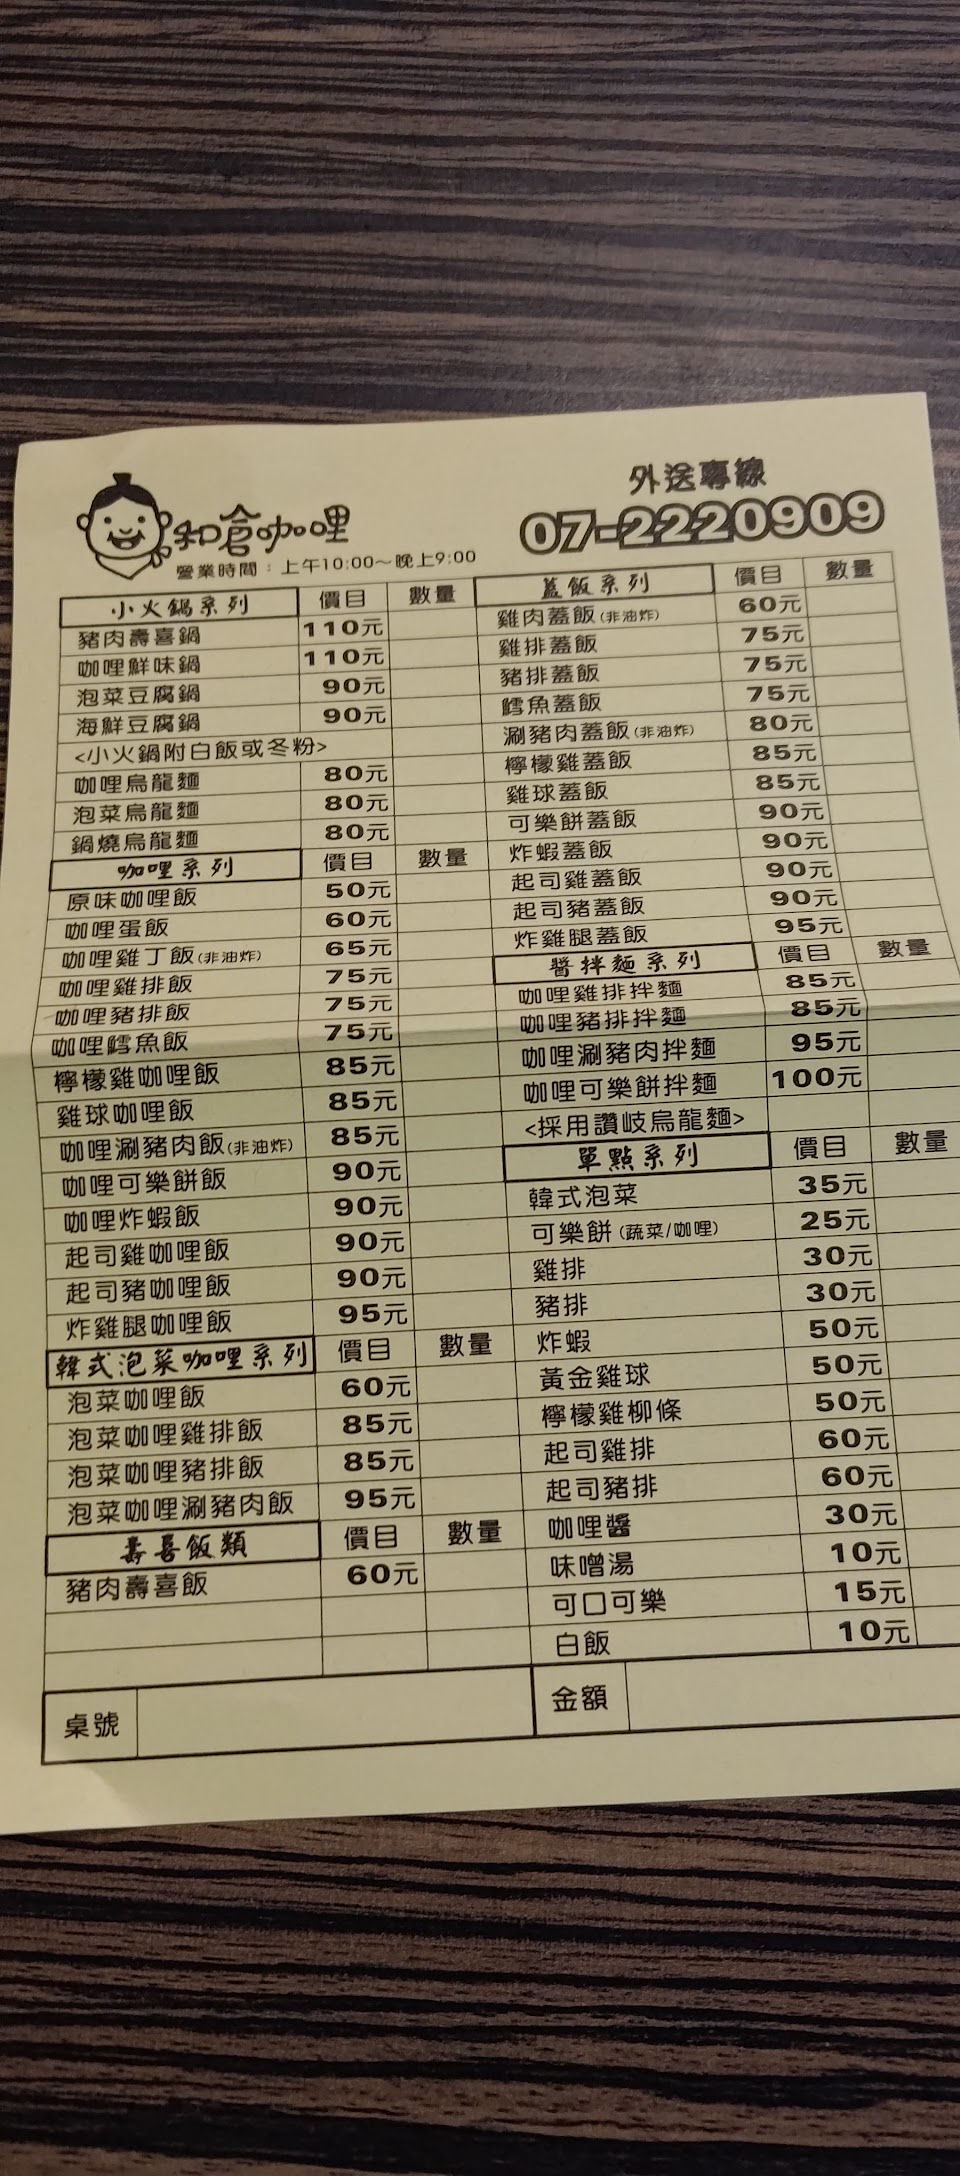 和倉咖哩
營業時間：上午10:00～晚上9:00
外送專線
07-2220909
小火鍋系列 價目 數量
豬肉壽喜鍋 110元
咖哩鮮味鍋 110元
泡菜豆腐鍋 90元
海鮮豆腐鍋 90元
<小火鍋附白飯或冬粉>
咖哩烏龍麵 80元
泡菜烏龍麵 80元
鍋燒烏龍麵 80元
咖哩系列 價目 數量
原味咖哩飯 50元
咖哩蛋飯 60元
咖哩雞丁飯(非油炸) 65元
咖哩雞排飯 75元
咖哩豬排飯 75元
咖哩鱈魚飯 75元
檸檬雞咖哩飯 85元
雞球咖哩飯 85元
咖哩涮豬肉飯(非油炸) 85元
咖哩可樂餅飯 90元
咖哩炸蝦飯 90元
起司雞咖哩飯 90元
起司豬咖哩飯 90元
炸雞腿咖哩飯 95元
韓式泡菜咖哩系列 價目 數量
泡菜咖哩飯 60元
泡菜咖哩雞排飯 85元
泡菜咖哩豬排飯 85元
泡菜咖哩涮豬肉飯 95元
壽喜飯類 價目 數量
豬肉壽喜飯 60元
蓋飯系列 價目 數量
雞肉蓋飯(非油炸) 60元
雞排蓋飯 75元
豬排蓋飯 75元
鱈魚蓋飯 75元
涮豬肉蓋飯(非油炸) 80元
檸檬雞蓋飯 85元
雞球蓋飯 85元
可樂餅蓋飯 90元
炸蝦蓋飯 90元
起司雞蓋飯 90元
起司豬蓋飯 90元
炸雞腿蓋飯 95元
醬拌麵系列 價目 數量
咖哩雞排拌麵 85元
咖哩豬排拌麵 85元
咖哩涮豬肉拌麵 95元
咖哩可樂餅拌麵 100元
<採用讚岐烏龍麵>
單點系列 價目 數量
韓式泡菜 35元
可樂餅(蔬菜/咖哩) 25元
雞排 30元
豬排 30元
炸蝦 50元
黃金雞球 50元
檸檬雞柳條 50元
起司雞排 60元
起司豬排 60元
咖哩醬 30元
味噌湯 10元
可口可樂 15元
白飯 10元
桌號
金額